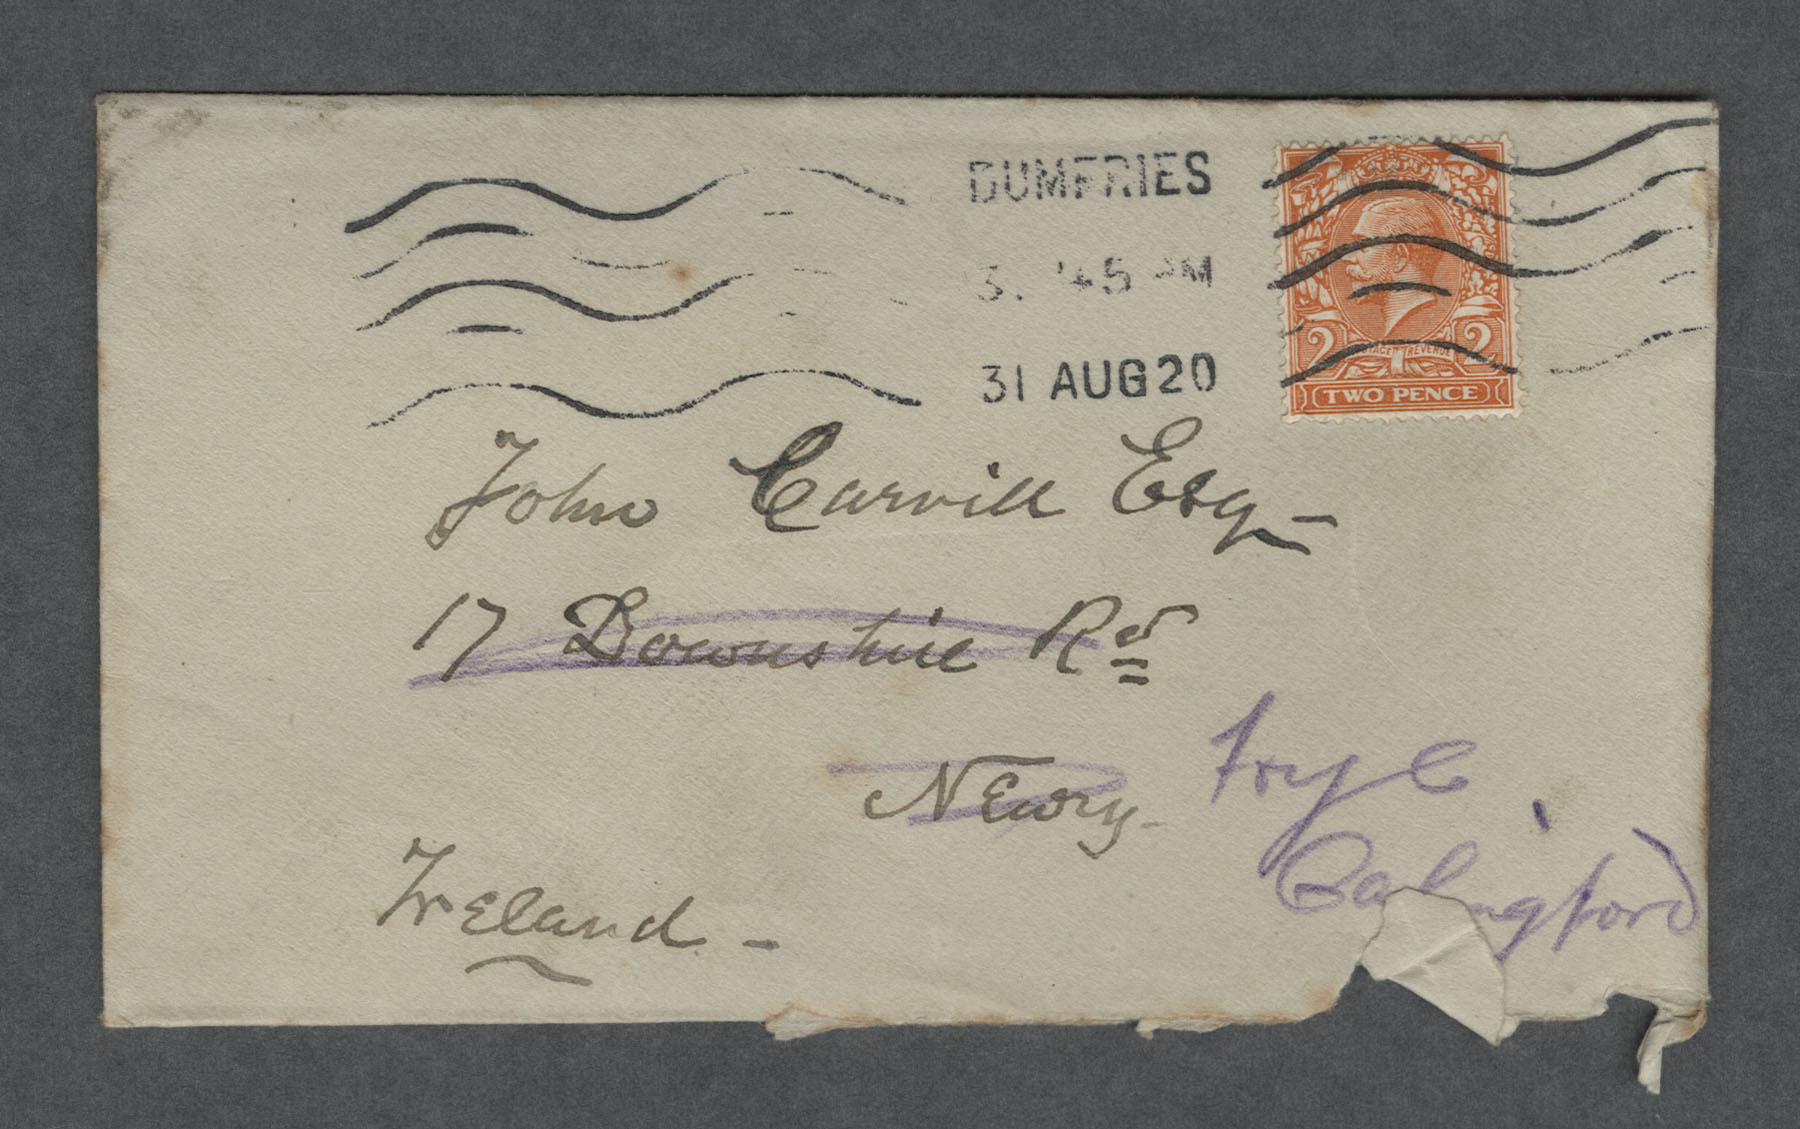 DUMFRIES
45 PM
31 AUG 20
2 POSTAGE REVENUE 2
TWO PENCE
John Carvill Esq -
17 Downshire Rd
Newry -
Try
Ireland -